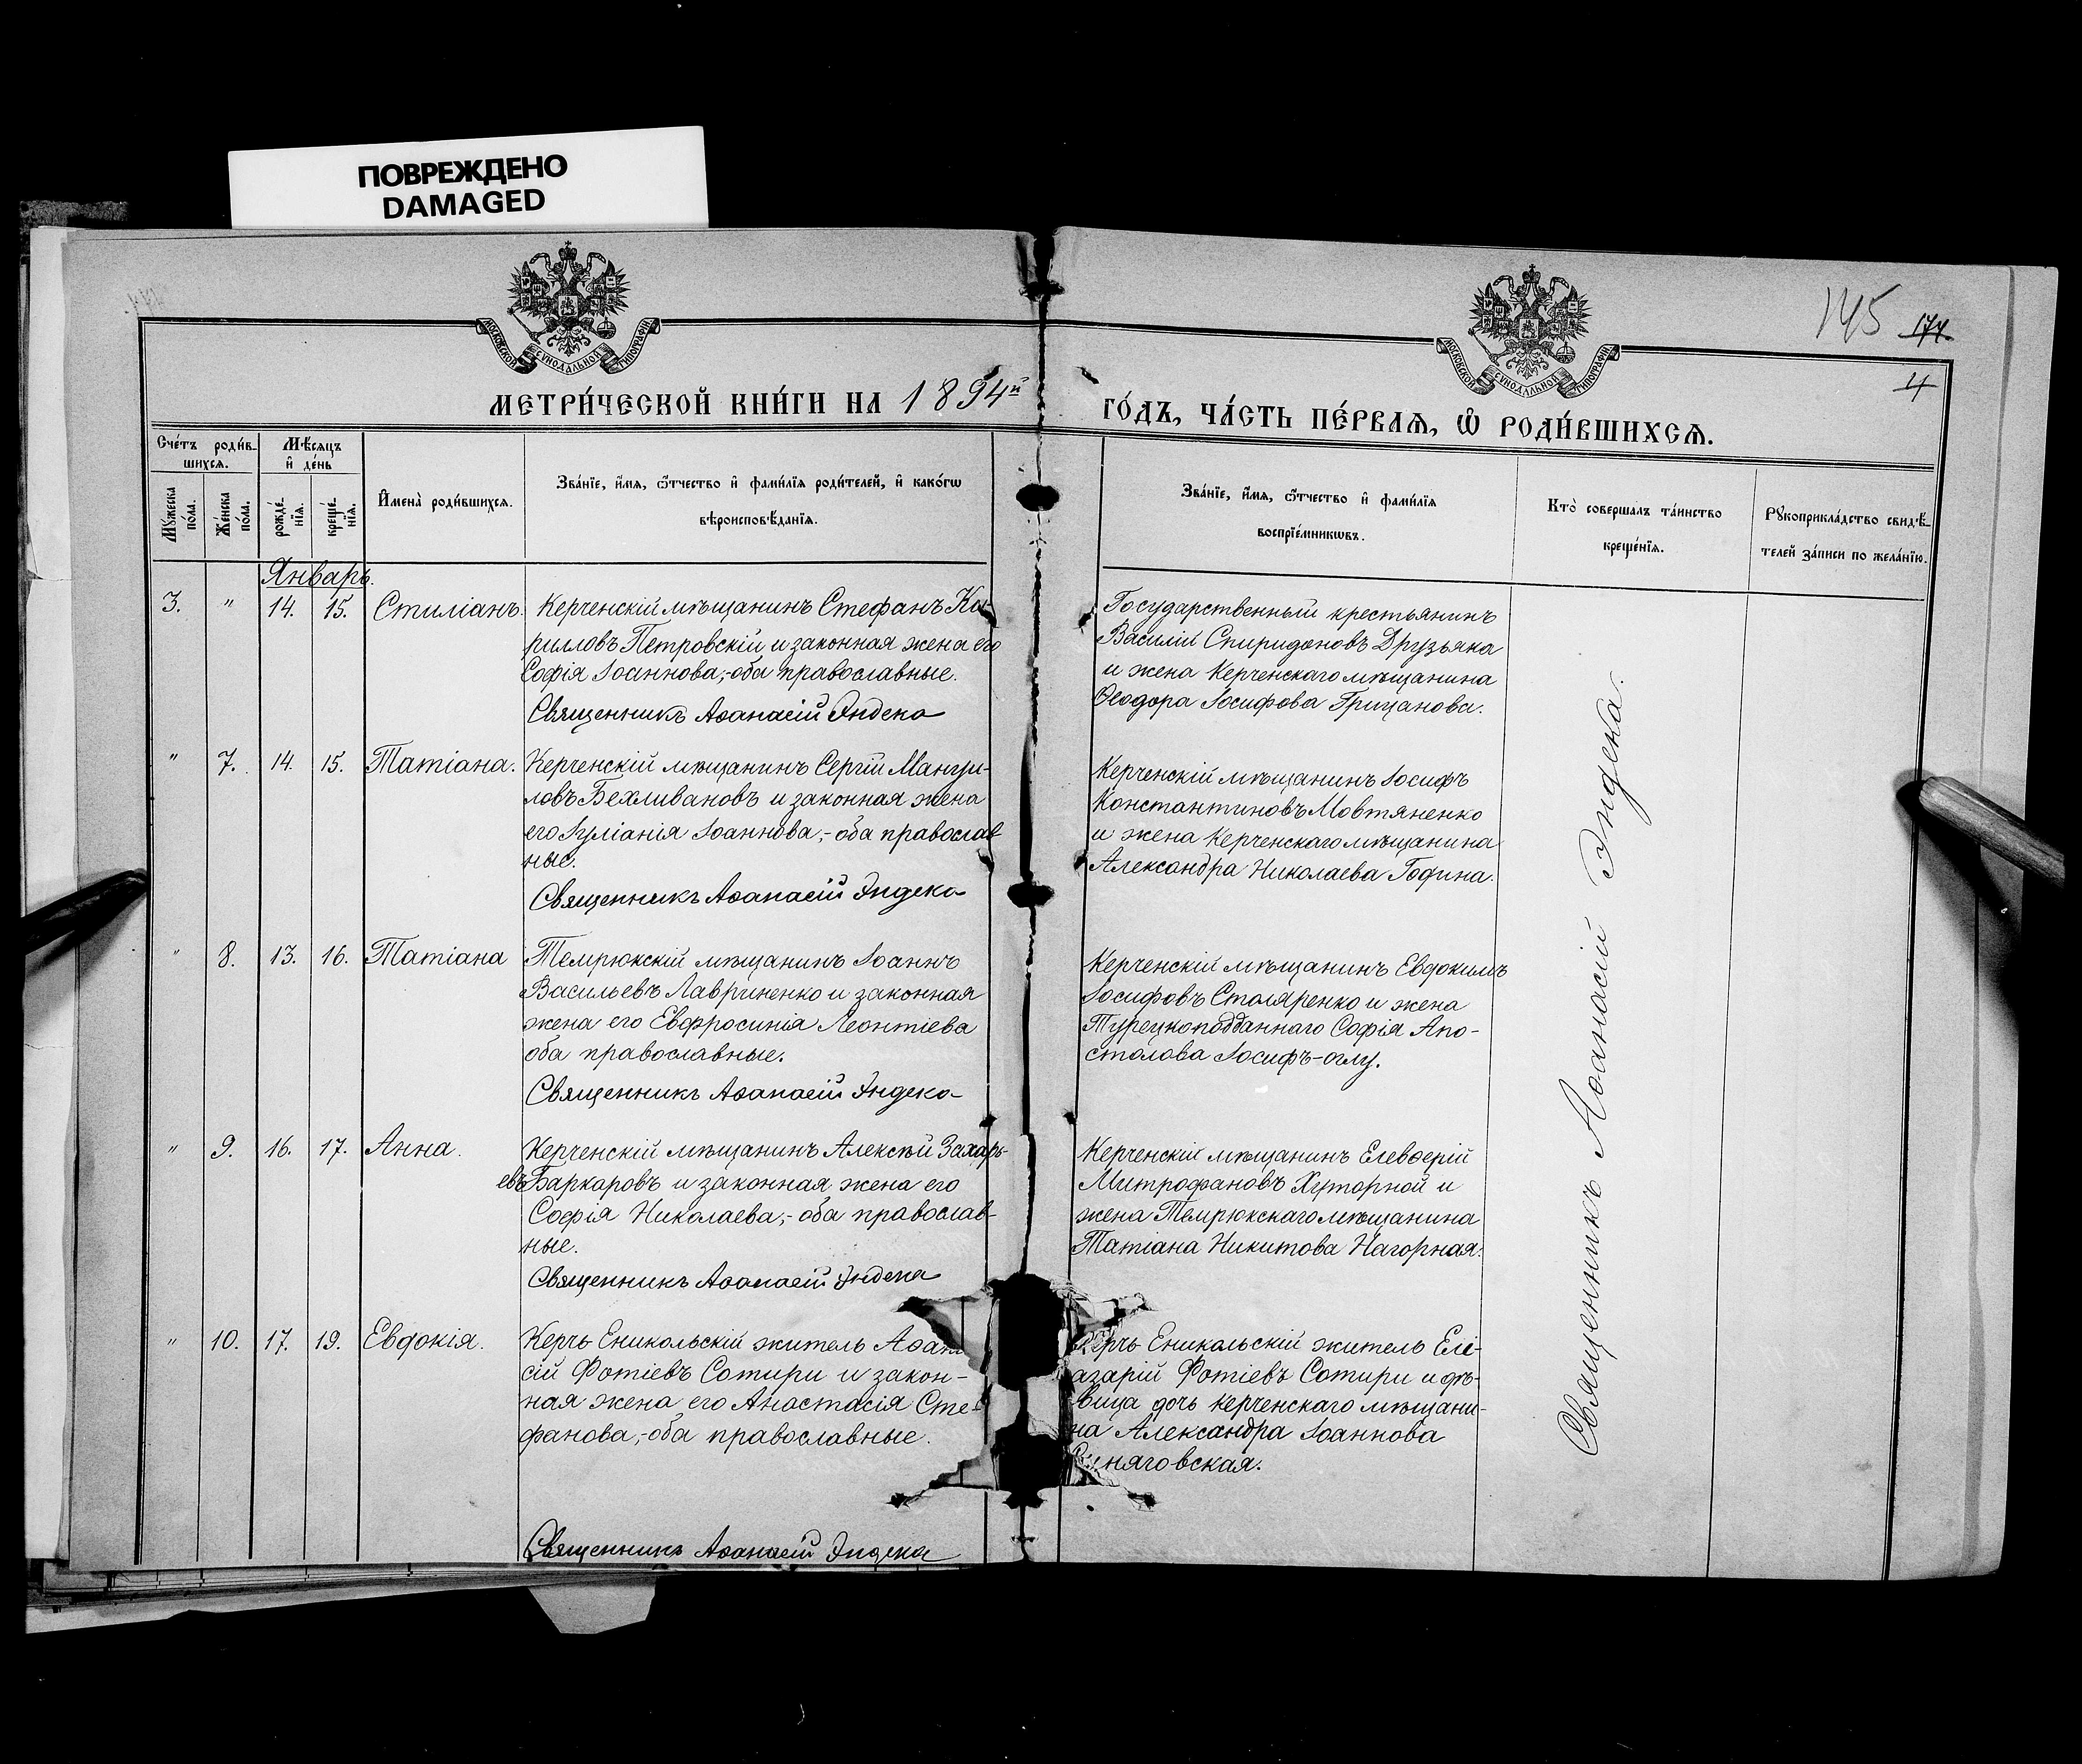 ПОВРЕЖДЕНО
DAMAGED
МОСКОВСКОЙ СУНОДАЛЬНОЙ ТИПОГРАФІИ
МОСКОВСКОЙ СУНОДАЛЬНОЙ ТИПОГРАФІИ
145 174.
4
МЕТРИ́ЧЕСКОЙ КНИ́ГИ НА 1894й
ГО́ДЪ, ЧА́СТЬ ПЕ́РВАѦ, Ѽ РОДИ́ВШИХСѦ.
Сче́тъ роди́в-
шихсѧ.
Мꙋжеска по́ла.
Же́нска по́ла.
Мѣ́сѧцъ
и҆ де́нь
рожде́-
нїѧ.
креще́-
нїѧ.
И҆мена̀ роди́вшихсѧ.
Зва́нїе, и҆́мѧ, ѻ҆́тчество и҆ фами́лїѧ роди́телей, и҆ како́гѡ
вѣроисповѣ́данїѧ.
Зва́нїе, и҆́мѧ, ѻ҆́тчество и҆ фами́лїѧ
воспрїе́мникѡвъ.
Кто̀ соверша́лъ та́инство
креще́нїѧ.
Рꙋкоприкла́дство свидѣ́-
телей за́писи по жела́нїю.
Январь.
3. " 14. 15. Стиліанъ. Керченскій мѣщанинъ Стефанъ Ки-
рилловъ Петровскій и законная жена его
Софія Іоаннова,-оба православные.
Священникъ Аѳанасій Эндека
Государственный крестьянинъ
Василій Спиридоновъ Друзьяка
и жена Керченскаго мѣщанина
Ѳеодора Іосифова Грицанова.
" 7. 14. 15. Татіана. Керченскій мѣщанинъ Сергій Мангу-
ловъ Бехливановъ и законная жена
его Іуліанія Іоаннова,-оба православ
ные.
Священникъ Аѳанасій Эндека
Керченскій мѣщанинъ Іосифъ
Константиновъ Мовтяненко
и жена Керченскаго мѣщанина
Александра Николаева Година.
" 8. 13. 16. Татіана Темрюкскій мѣщанинъ Іоаннъ
Васильевъ Лавриненко и законная
жена его Евфросинія Леонтіева
оба православные.
Священникъ Аѳанасій Эндека
Керченскій мѣщанинъ Евдокимъ
Іосифовъ Столяренко и жена
Турецкоподданнаго Софія Апо-
столова Іосифъ-оглу.
" 9. 16. 17. Анна. Керченскій мѣщанинъ Алексѣй Захарь-
евъ Баркаровъ и законная жена его
Софія Николаева,-оба православ-
ные.
Священникъ Аѳанасій Эндека
Керченскій мѣщанинъ Елевѳерій
Митрофановъ Хуторной и
жена Темрюкскаго мѣщанина
Татіана Никитова Нагорная.
" 10. 17. 19. Евдокія. Керчь Еникольскій житель Аѳана
сій Фотіевъ Сотири и закон-
ная жена его Анастасія Сте-
фанова,-оба православные.
Священникъ Аѳанасій Эндека
Керчь Еникольскій житель Еле-
азарій Фотіевъ Сотири и дѣ-
вица дочь керченскаго мѣщани-
на Александра Іоаннова
няговская.
Священникъ Аѳанасій Эндека.